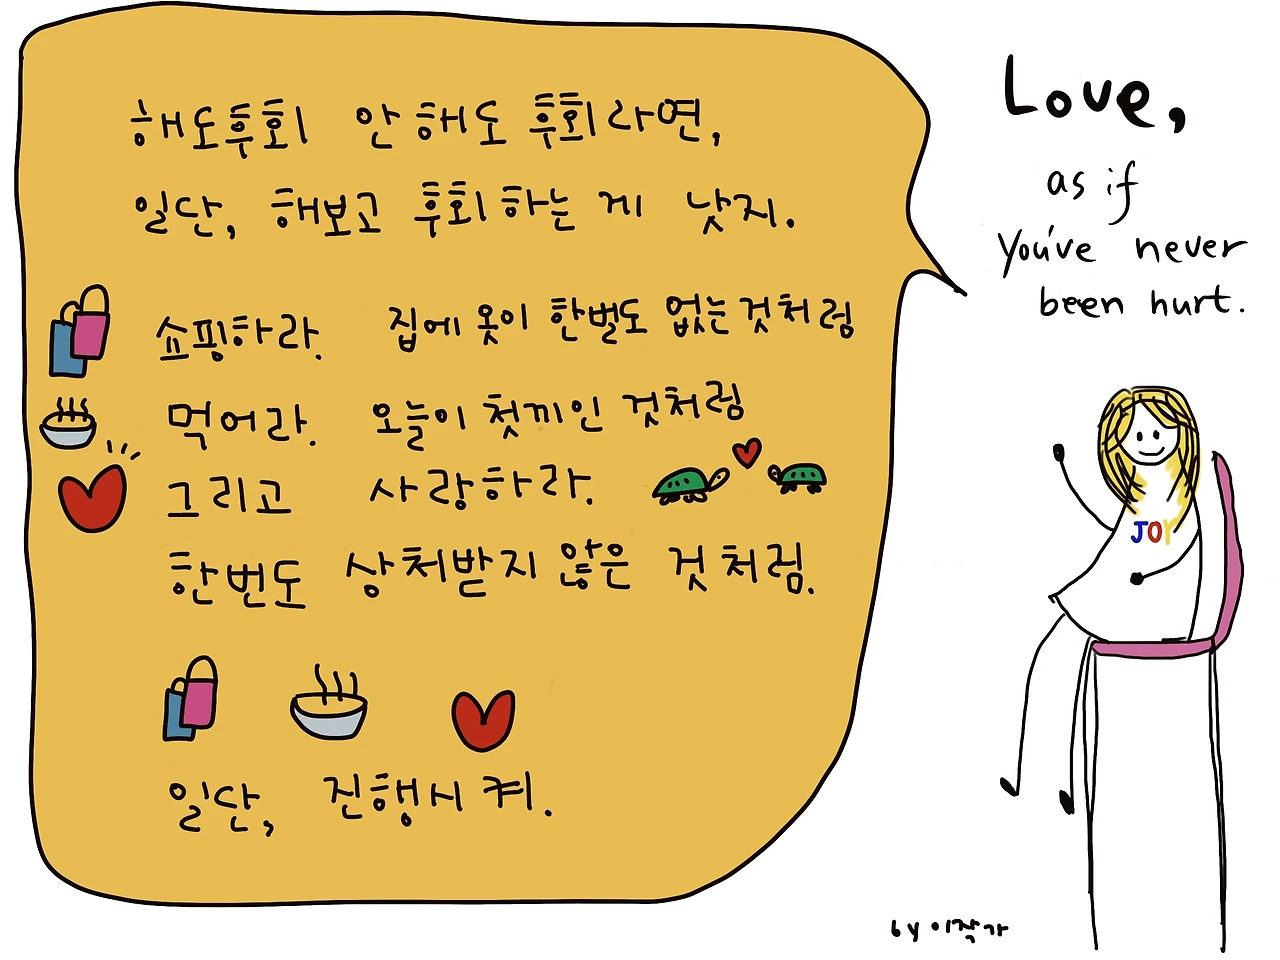 해도후회 안해도 후회라면,
일단, 해보고 후회하는 게 낫지.
쇼핑하라. 집에 옷이 한벌도 없는것처럼
먹어라. 오늘이 첫끼인 것처럼
그리고 사랑하라.
한번도 상처받지 않은 것처럼.
일단, 진행시켜.
Love,
as if
You've never
been hurt.
JOY
by 이작가